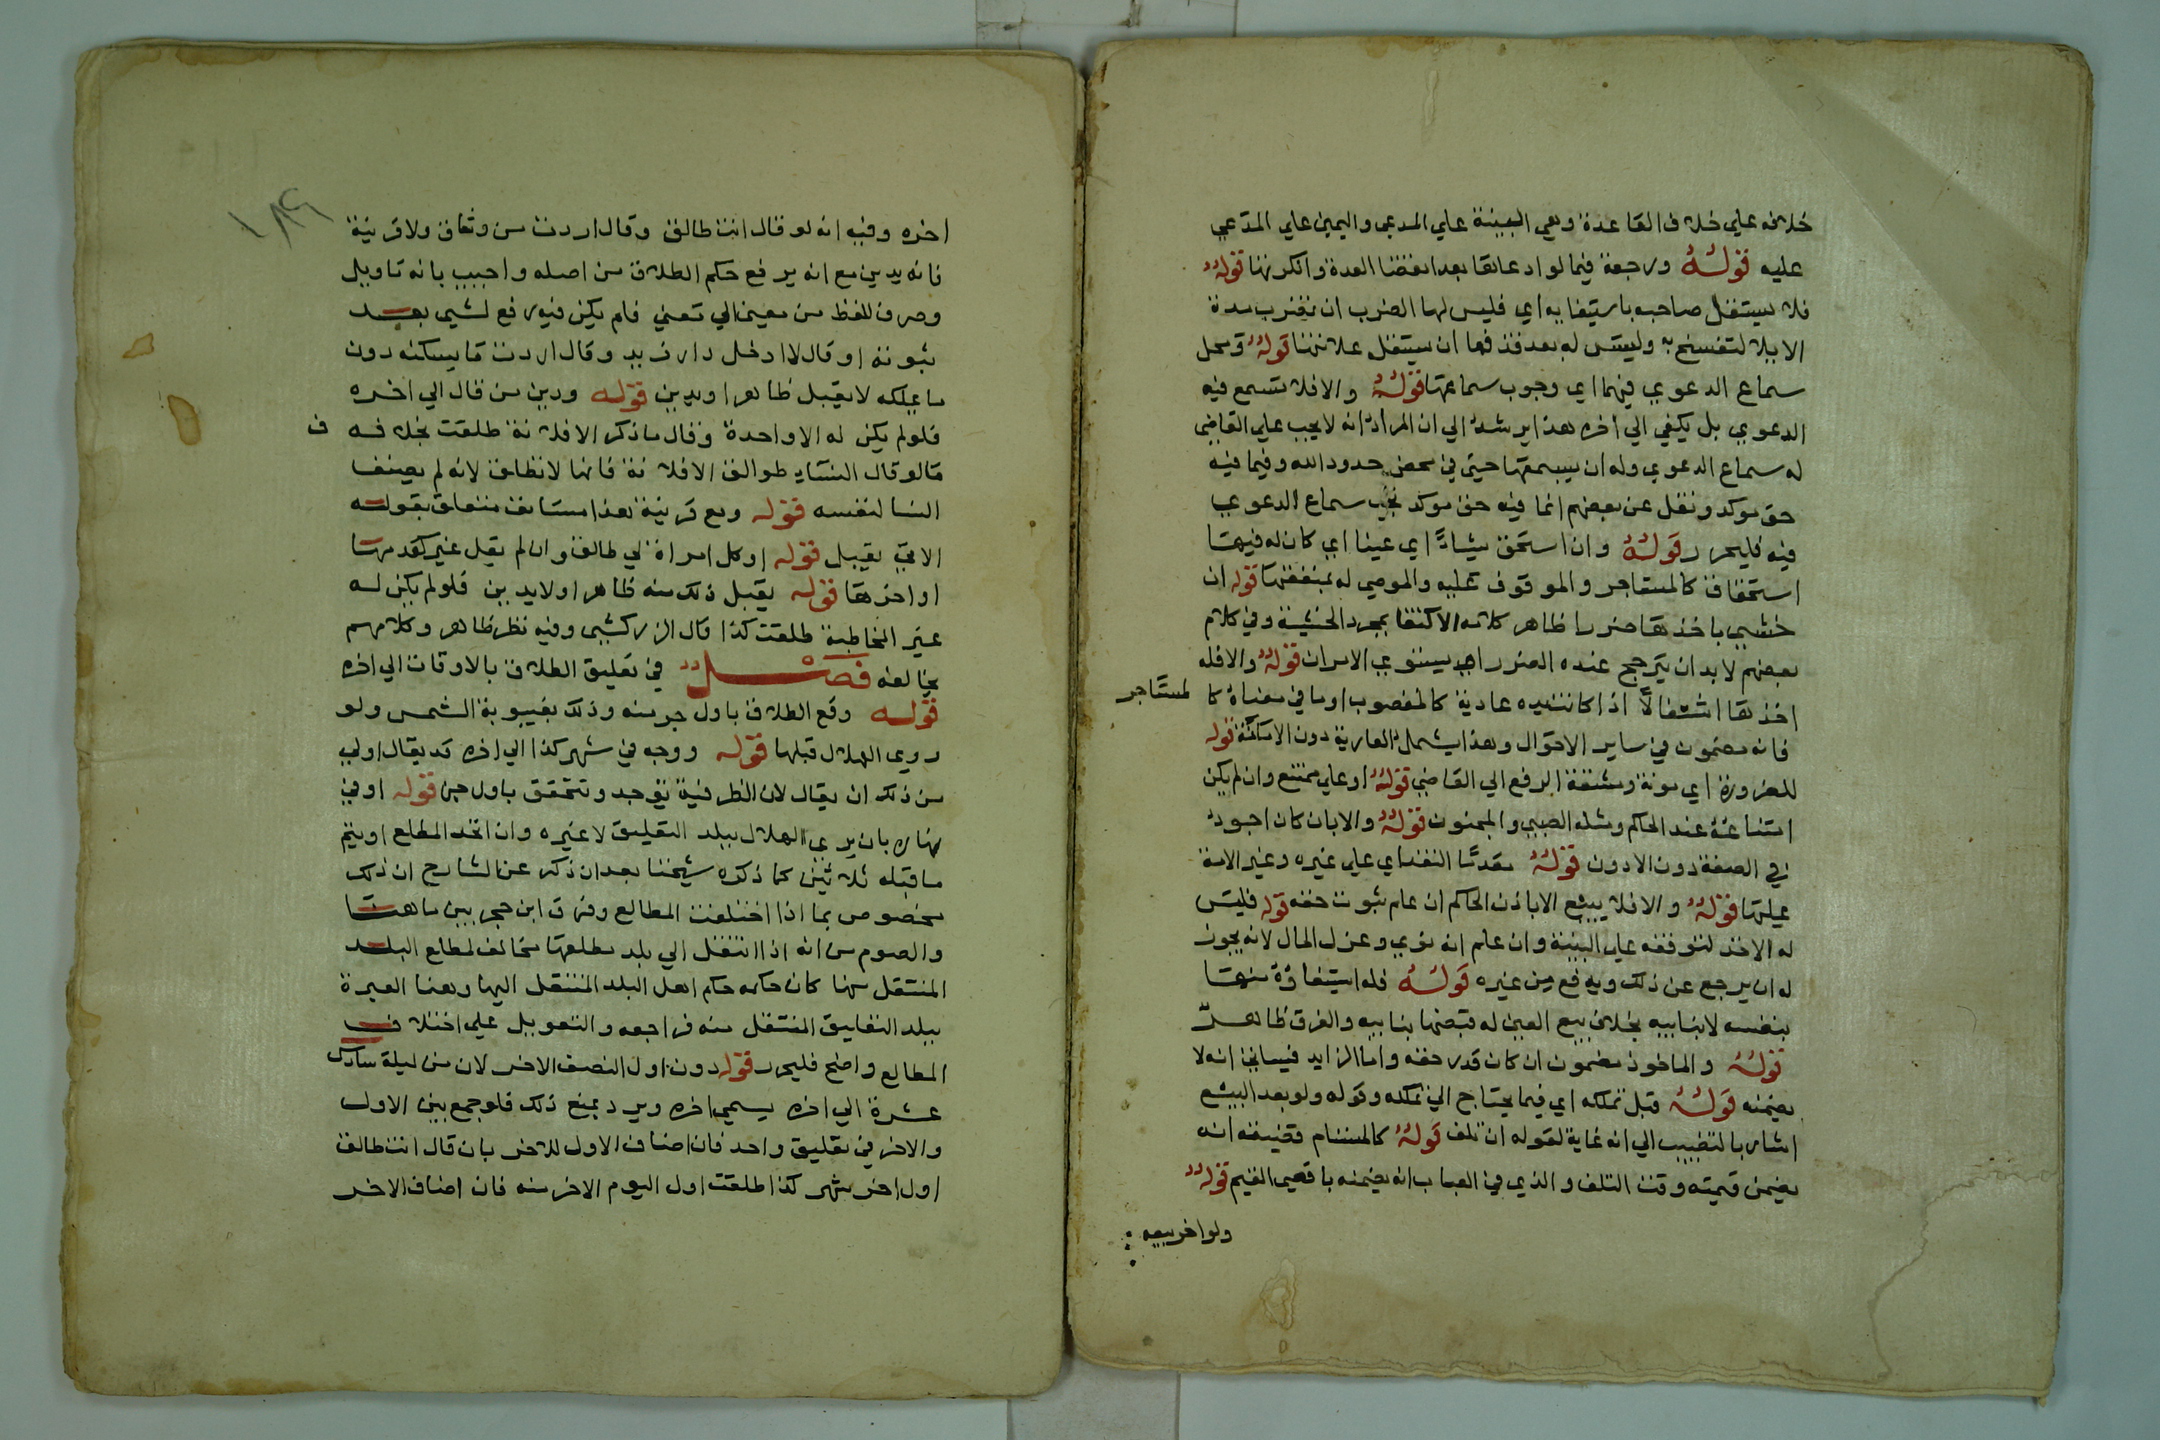 خلافه علي خلاف القاعدة وهي البينة علي المدعي واليمين علي المدعي
عليه قوله ورجعة فيما لو ادعاها بعد انقضا العدة وانكرتها قوله
فلا يستقل صاحبه باستيفايه اي فليس لها الضرب ان تضرب مدة
الايلا لتفسخ به وليس له بعد قذفها ان يستقل علانتها قوله ومحل
سماع الدعوي فيهما اي وجوب سماعها قوله والا فلا تسمع فيه
الدعوي بل يكفي الي اخره هذا يرشد الي ان المراد انه لا يجب علي القاضي
له سماع الدعوي وله ان يسمعها حتي في محض حدود الله وفيما فيه
حق موكد ونقل عن بعضهم انما فيه حق موكد تجب سماع الدعوي
فيه فليحرر قوله وان استحق شيا اي عينا اي كان له فيها
استحقاق كالمستاجر والموقوف عليه والموصي له بمنفعتها قوله ان
خشي باخذها ضررا ظاهر كلامه الاكتفا بمجرد الخشية وفي كلام
بعضهم لا بد ان يترجح عنده الضرر او يستوي الامران قوله والا فله
اخذها استقلالا اذا كانت يده عادية كالمغصوب او ما في معناه كا لمستاجر
فانه مضمون في ساير الاحوال وهذا يشمل العارية دون الامانة قوله
للضرورة اي مونة ومشقة الرفع الي القاضي قوله او علي ممتنع وان لم يكن
امتناعه عند الحاكم ومثله الصبي والمجنون قوله والا بان كان اجود
في الصفة دون الادون قوله مقدما النقد اي علي غيره وغير الامة
عليها قوله والا فلا يبيع الا باذن الحاكم ان علم ثبوت حقه قوله فليس
له الاخذ لتوقفه علي البينة وان علم انه نوي وعزل المال لانه يجوز
له ان يرجع عن ذلك ويدفع من غيره قوله فله استيفاوه منها
بنفسه لا بنايبه بخلاف بيع العين له قبضها بنايبه والفرق ظاهر
قوله والماخوذ مضمون ان كان قدر حقه واما الزايد فسياتي انه لا
يضمنه قوله قبل تملكه اي فيما يحتاج الي تملكه وقوله ولو بعد البيع
اشار بالتضبيب الي انه غاية لقوله ان تلف قوله كالمستام قضيته انه
يضمن قيمته وقت التلف والذي في العباب انه يضمنه باقصي القيم قوله
ولو اخر بيعه
١٨٩
اخره وفيه انه لو قال انت طالق وقال اردت من وثاق ولا قرينة
فانه يدين مع انه يرفع حكم الطلاق من اصله واجيب بانه تاويل
وصرف للفظ من معني الي معني فلم يكن فيه رفع لشي بعد
ثبوته او قال لا ادخل دار زيد وقال اردت ما يسكنه دون
ما يملكه لا يقبل ظاهرا ويدين قوله ودين من قال الي اخره
فلو لم يكن له الا واحدة وقال ما ذكر الا فلانة طلقت بخلاف
ما لو قال النساء طوالق الا فلانة فانها لا تطلق لانه لم يضف
النسا لنفسه قوله ومع قرينة هذا مستانف متعلق بقوله
الاتي يقبل قوله او كل امراة لي طالق وان لم يقل غير كقدمها
او اخرها قوله يقبل ذلك منه ظاهرا ولا يدين فلو لم يكن له
غير المخاطبة طلقت كذا قال الزركشي وفيه نظر ظاهر وكلامهم
يخالفه فصل في تعليق الطلاق بالاوقات الي اخره
قوله وقع الطلاق باول جزء منه وذلك بغيبوبة الشمس ولو
روي الهلال قبلها قوله ووجه في شهر كذا الي اخره قد يقال اولي
من ذلك ان يقال لان الظرفية توجد وتتحقق باول جزء قوله او في
نهاره بان يري الهلال ببلد التعليق لا غيره وان اتحد المطلع او يتم
ما قبله ثلاثين كما ذكره شيخنا بعد ان ذكر عن الشارح ان ذلك
مخصوص بما اذا اختلفت المطالع وفرق ابن حجر بين ما هنا
والصوم من انه اذا انتقل الي بلد مطلعها مخالف لمطلع البلد
المنتقل منها كان حكمه حكم اهل البلد المنتقل اليها وهنا العبرة
ببلد التعليق المنتقل منه فراجعه والتعويل علي اختلاف
المطالع واضح فليحرر قوله دون اول النصف الاخر لان من ليلة سادس
عشرة الي اخره يسمي اخره ويرد بمنع ذلك فلو جمع بين الاول
والاخر في تعليق واحد فان اضاف الاول للاخر بان قال انت طالق
اول اخر شهر كذا طلقت اول اليوم الاخر منه فان اضاف الاخر